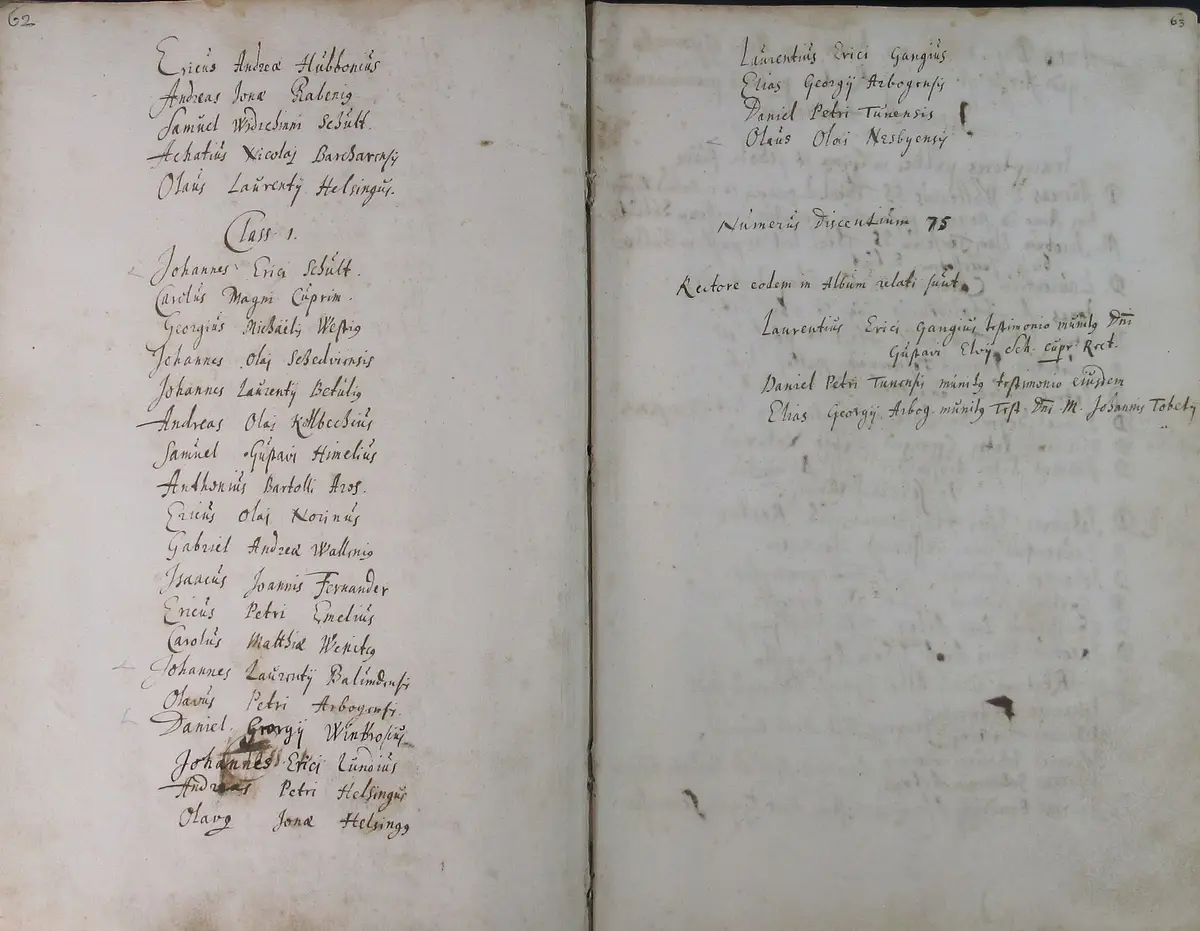 62
Ericus Andreæ Hubbonius
Andreas Jonæ Rabenig
Samuel Schult.
Achatius Nicolaj Barcharensis
Olaus Laurentij Helsingus.
Class. 1.
Johannes Erici Schult.
Carolus Magni Cuprim.
Georgius Michaëlis Westig
Johannes Olaj Schedviensis
Johannes Laurentij Betulig
Andreas Olaj Kolbechius
Samuel Gustavi Himelius
Anthonius Bartolli Aros.
Ericus Olaj Norinus
Gabriel Andreæ Wallinig
Isaacus Joannis Fernander
Ericus Petri Emelius
Carolus Matthiæ
Johannes Laurentij
Olavus Petri Arbogensis.
Daniel Georgij
Johannes Erici Lundius
Andreas Petri Helsingus
Olavg Jonæ Helsingg
63
Laurentius Erici Gangius
Elias Georgij Arbogensis
Daniel Petri Tunensis
Olaus Olai Nesbyensis
Numerus Discentium 75
Rectore eodem in Album relati sunt
Laurentius Erici Gangius testimonio munitg Dni
Gustavi Elvij Sch. cupr. Rect.
Daniel Petri Tunensis munitg testimonio eiusdem
Elias Georgij Arbog. munitg Test. Dni M. Johannis